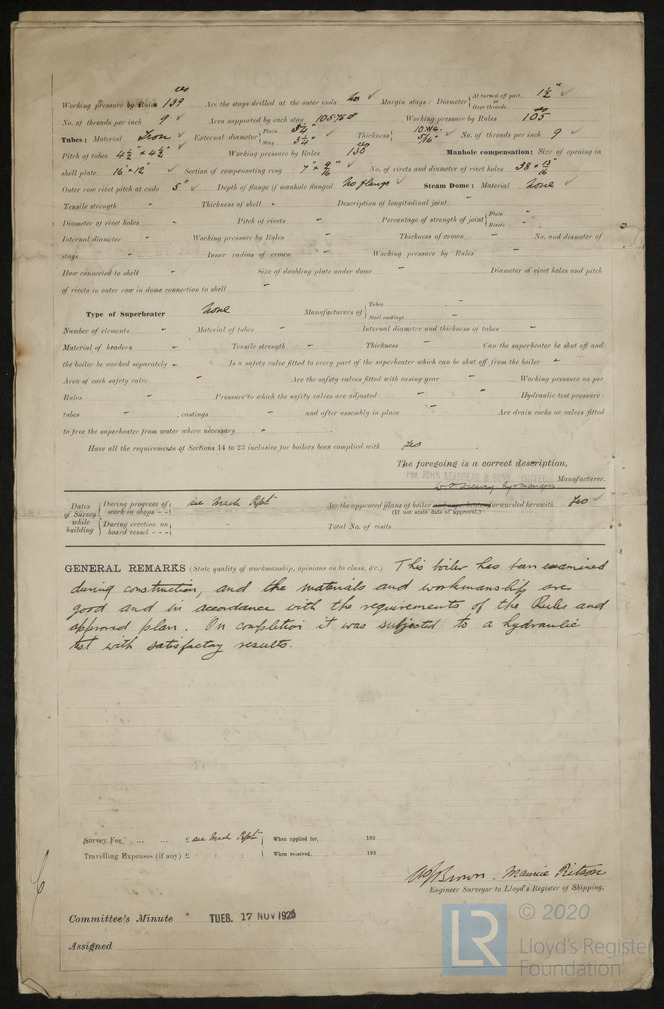 Working pressure by Rules 139 lbs Are the stays drilled at the outer ends no Margin stays: Diameter { At turned off part, or Over threads 1½"
No. of threads per inch 9 Area supported by each stay Working pressure by Rules 105 lbs
Tubes: Material Iron External diameter { Plain 3¼" Stay 3¼" Thickness { 10 W.G. 5/16" No. of threads per inch 9
Pitch of tubes 4½" × 4½" Working pressure by Rules 130 lbs Manhole compensation: Size of opening in
shell plate 16" × 12" Section of compensating ring 7" × 9/16" No. of rivets and diameter of rivet holes 38 × 13/16
Outer row rivet pitch at ends 5" Depth of flange if manhole flanged No flange Steam Dome: Material None
Tensile strength " Thickness of shell " Description of longitudinal joint "
Diameter of rivet holes " Pitch of rivets " Percentage of strength of joint { Plate " Rivets "
Internal diameter " Working pressure by Rules " Thickness of crown " No. and diameter of
stays " Inner radius of crown " Working pressure by Rules "
How connected to shell " Size of doubling plate under dome " Diameter of rivet holes and pitch
of rivets in outer row in dome connection to shell "
Type of Superheater None Manufacturers of { Tubes " Steel castings "
Number of elements " Material of tubes " Internal diameter and thickness of tubes "
Material of headers " Tensile strength " Thickness " Can the superheater be shut off and
the boiler be worked separately " Is a safety valve fitted to every part of the superheater which can be shut off from the boiler "
Area of each safety valve " Are the safety valves fitted with easing gear " Working pressure as per
Rules " Pressure to which the safety valves are adjusted " Hydraulic test pressure:
tubes " castings " and after assembly in place " Are drain cocks or valves fitted
to free the superheater from water where necessary "
Have all the requirements of Sections 14 to 23 inclusive for boilers been complied with Yes
The foregoing is a correct description,
FOR JOHN READHEAD & SONS, LIMITED. Manufacturer.
Dates of Survey while building { During progress of work in shops - - { see Mach Rpt Are the approved plans of boiler and superheater forwarded herewith Yes
(If not state date of approval.)
{ During erection on board vessel - - - { Total No. of visits
GENERAL REMARKS (State quality of workmanship, opinions as to class, &c.) This boiler has been examined
during construction, and the materials and workmanship are
good and in accordance with the requirements of the Rules and
approved plan. On completion it was subjected to a hydraulic
test with satisfactory results.
Survey Fee ... ... £ see Mach Rpt When applied for, 192
Travelling Expenses (if any) £ : : When received, 192
W Brown. Maurice Ritson
Engineer Surveyor to Lloyd's Register of Shipping.
Committee's Minute TUES. 17 NOV 1925
Assigned
LR © 2020
Lloyd's Register
Foundation